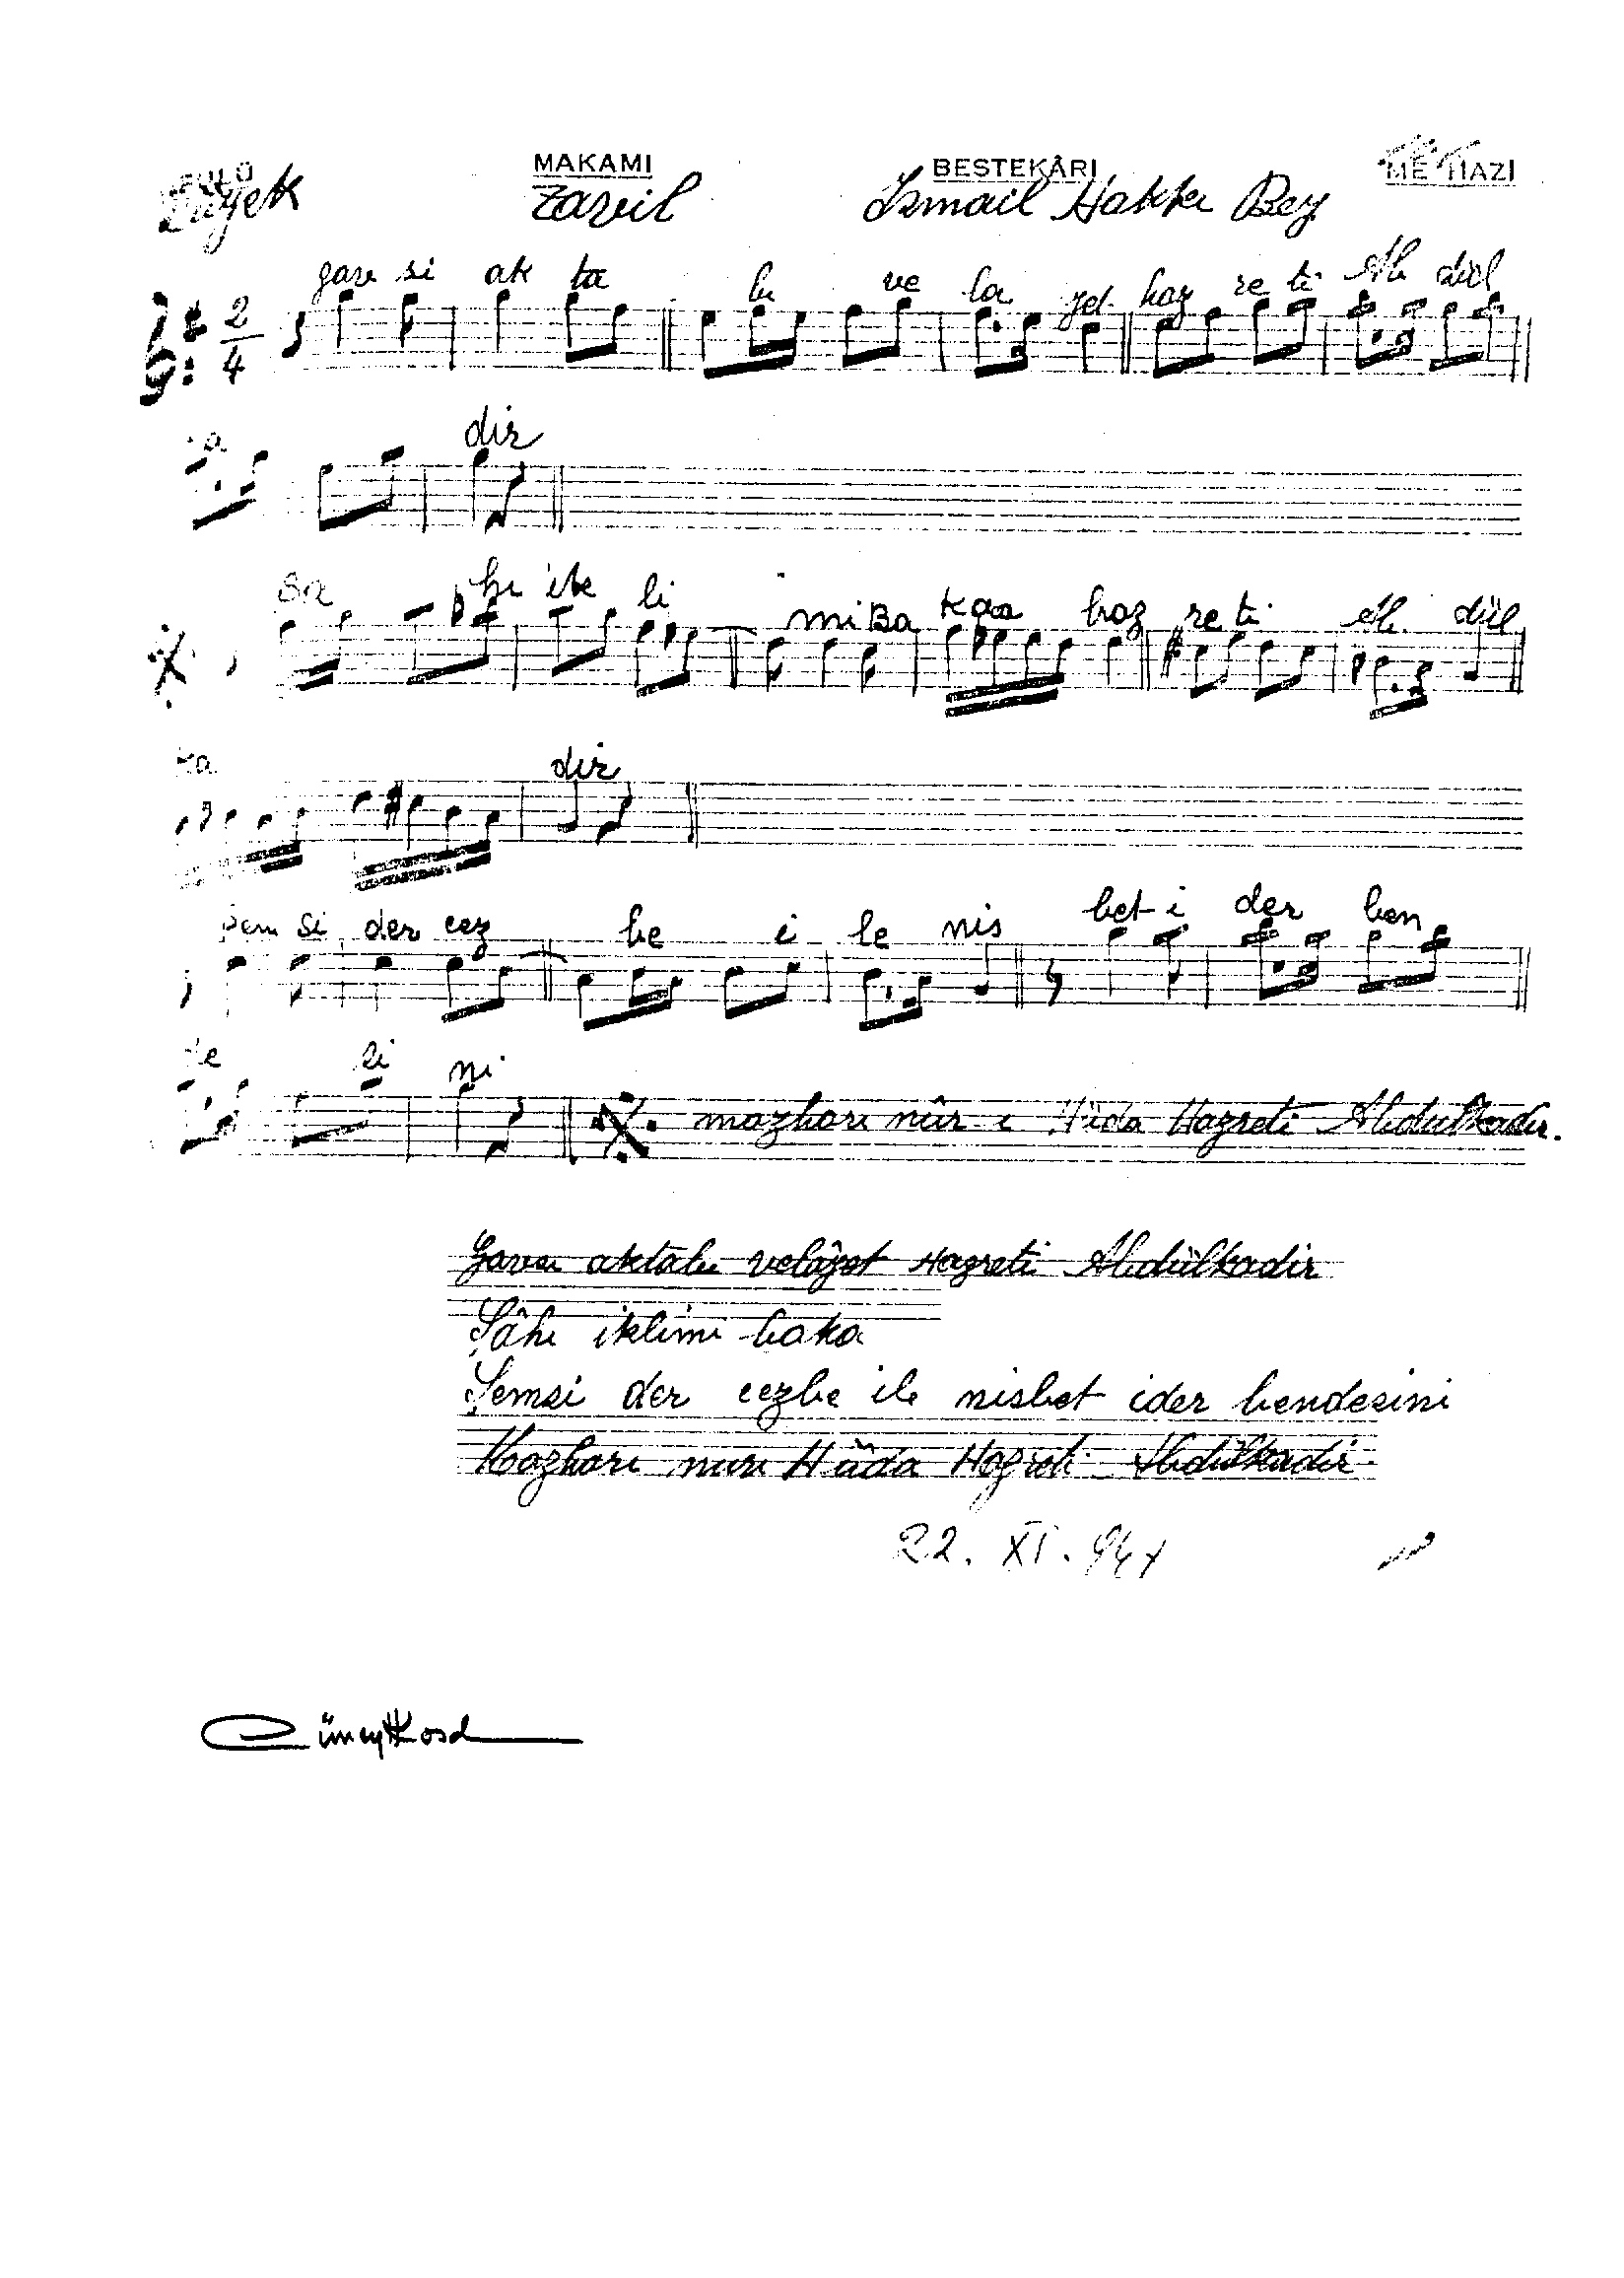 MAKAMI BESTEKÂRI
Zavil İsmail Hakkı Bey
2
4
gav si ak ta bı ve la yet haz re ti Ab dül
ka dir
Şa hı ik li mi Ba kaa haz re ti Ab dül
ka dir
Şem si der cez be i le nis bet i der ben
de si ni
mazharı nûr i Hüda Hazreti Abdülkadir.
Gavsı aktabı velâyet Hazreti Abdülkadir
Şâhı iklimi baka
Şemsi der cezbe ile nisbet ider bendesini
Mazharı nuru Hüda Hazreti Abdülkadir
22. XI.
Cüneyt Kosal